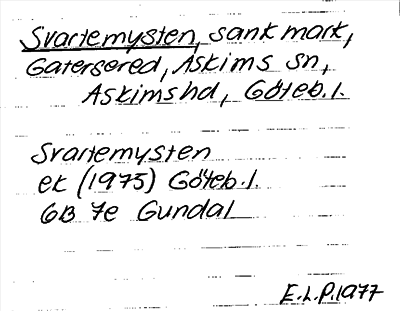 Svartemysten, sank mark,
Gatersered, Askims sn,
Askimshd, Göteb.l.
Svartemysten
ek (1975) Göteb.l.
6B 7e Gundal
E.L.P.1977